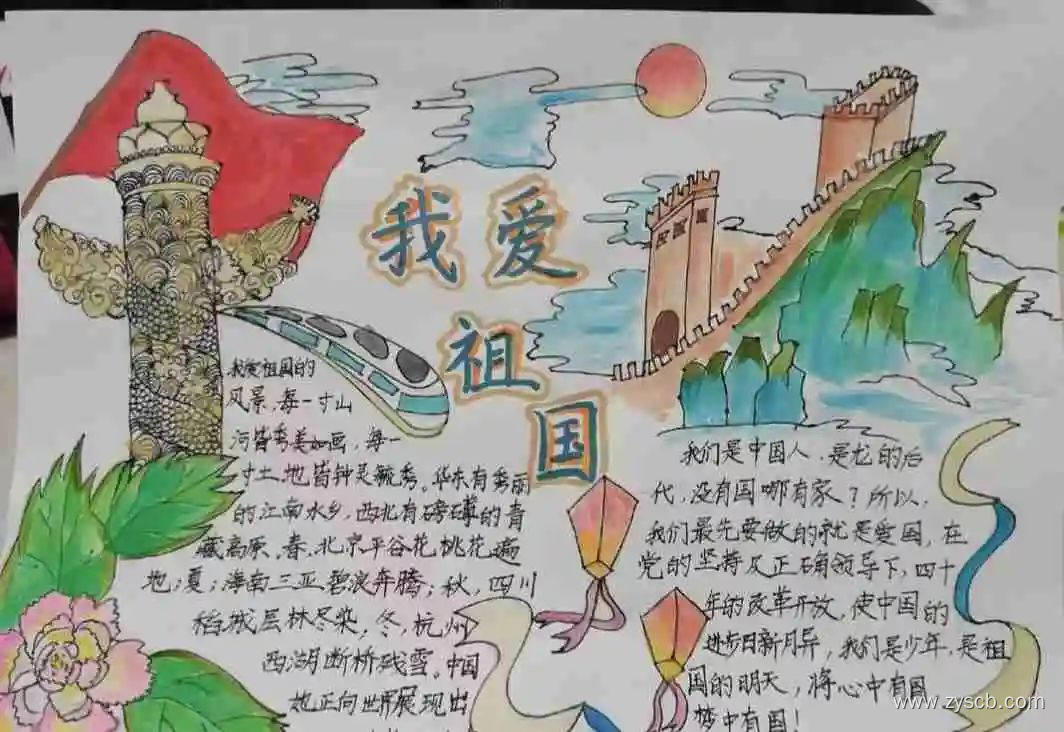 我爱
祖
国
我爱祖国的
风景,每一寸山
河皆秀美如画,每一
寸土地皆钟灵毓秀。华东有秀丽
的江南水乡,西北有磅礴的青
藏高原。春,北京平谷花桃花遍
地;夏;海南三亚碧浪奔腾;秋,四川
稻城层林尽染,冬,杭州
西湖断桥残雪。中国
地正向世界展现出
我们是中国人,是龙的后
代,没有国哪有家?所以,
我们最先要做的就是爱国,在
党的坚持及正确领导下,四十
年的改革开放,使中国的
进步日新月异,我们是少年,是祖
国的明天,将心中有国
梦中有国!
www.zyscb.com